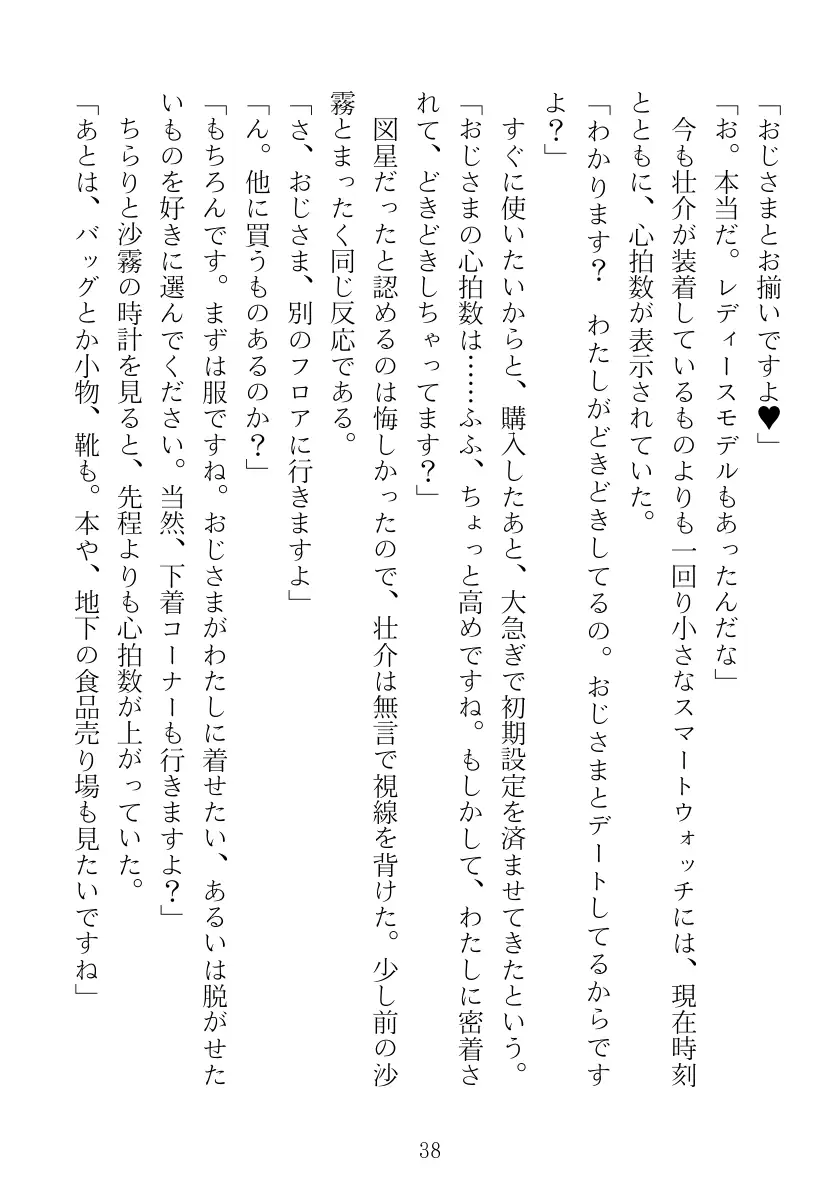 「おじさまとお揃いですよ♥」
「お。本当だ。レディースモデルもあったんだな」
　今も壮介が装着しているものよりも一回り小さなスマートウォッチには、現在時刻
とともに、心拍数が表示されていた。
「わかります？　わたしがどきどきしてるの。おじさまとデートしてるからです
よ？」
　すぐに使いたいからと、購入したあと、大急ぎで初期設定を済ませてきたという。
「おじさまの心拍数は……ふふ、ちょっと高めですね。もしかして、わたしに密着さ
れて、どきどきしちゃってます？」
　図星だったと認めるのは悔しかったので、壮介は無言で視線を背けた。少し前の沙
霧とまったく同じ反応である。
「さ、おじさま、別のフロアに行きますよ」
「ん。他に買うものあるのか？」
「もちろんです。まずは服ですね。おじさまがわたしに着せたい、あるいは脱がせた
いものを好きに選んでください。当然、下着コーナーも行きますよ？」
　ちらりと沙霧の時計を見ると、先程よりも心拍数が上がっていた。
「あとは、バッグとか小物、靴も。本や、地下の食品売り場も見たいですね」
38